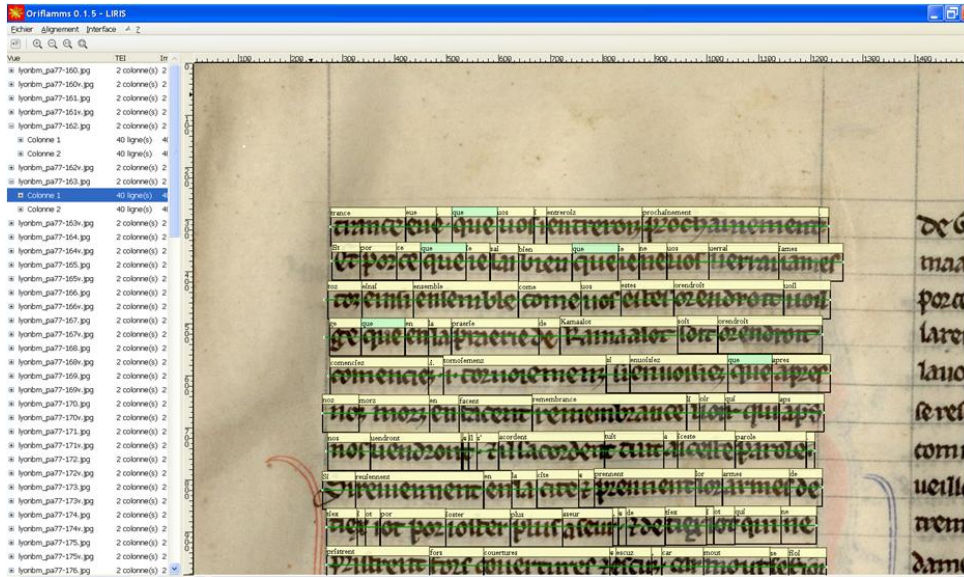 Oriflamms 0.1.5 - LIRIS
Fichier Alignement Interface ?
Vue TEI
lyonbm_pa77-160.jpg 2 colonne(s) 2
lyonbm_pa77-160v.jpg 2 colonne(s) 2
lyonbm_pa77-161.jpg 2 colonne(s) 2
lyonbm_pa77-161v.jpg 2 colonne(s) 2
lyonbm_pa77-162.jpg 2 colonne(s) 2
Colonne 1 40 ligne(s)
Colonne 2 40 ligne(s)
lyonbm_pa77-162v.jpg 2 colonne(s) 2
lyonbm_pa77-163.jpg 2 colonne(s) 2
Colonne 1 40 ligne(s)
Colonne 2 40 ligne(s)
lyonbm_pa77-163v.jpg 2 colonne(s) 2
lyonbm_pa77-164.jpg 2 colonne(s) 2
lyonbm_pa77-164v.jpg 2 colonne(s) 2
lyonbm_pa77-165.jpg 2 colonne(s) 2
lyonbm_pa77-165v.jpg 2 colonne(s) 2
lyonbm_pa77-166.jpg 2 colonne(s) 2
lyonbm_pa77-166v.jpg 2 colonne(s) 2
lyonbm_pa77-167.jpg 2 colonne(s) 2
lyonbm_pa77-167v.jpg 2 colonne(s) 2
lyonbm_pa77-168.jpg 2 colonne(s) 2
lyonbm_pa77-168v.jpg 2 colonne(s) 2
lyonbm_pa77-169.jpg 2 colonne(s) 2
lyonbm_pa77-169v.jpg 2 colonne(s) 2
lyonbm_pa77-170.jpg 2 colonne(s) 2
lyonbm_pa77-170v.jpg 2 colonne(s) 2
lyonbm_pa77-171.jpg 2 colonne(s) 2
lyonbm_pa77-171v.jpg 2 colonne(s) 2
lyonbm_pa77-172.jpg 2 colonne(s) 2
lyonbm_pa77-172v.jpg 2 colonne(s) 2
lyonbm_pa77-173.jpg 2 colonne(s) 2
lyonbm_pa77-173v.jpg 2 colonne(s) 2
lyonbm_pa77-174.jpg 2 colonne(s) 2
lyonbm_pa77-174v.jpg 2 colonne(s) 2
lyonbm_pa77-175.jpg 2 colonne(s) 2
lyonbm_pa77-175v.jpg 2 colonne(s) 2
lyonbm_pa77-176.jpg 2 colonne(s) 2
100 200 300 400 500 600 700 800 900 1000 1100 1200 1300 1400
trance eue . que uos ſ entreroiz prochainement
Et por ce que ie ſai bien que ie ne uos uerrai iames
toz einſi enſemble come uos eſtes orendroit uoil
ge que en la praerie de Kamaalot ſoit orendroit
comenciez .i. tornoiemenz ſi enuoiſiez que apres
noz morz en facent remembrance li oir qui aps
nos uendront acordent tuit a ceſte parole .
Si reuiennent en la cite prennent lor armes de
tiex i ot por ioſter plus aſeur de tiex i ot qui ne
priſtrent fors couertures eſcuz . car mout ſe fioi
de
maa
porce
lare
com
ueille
trem
dame